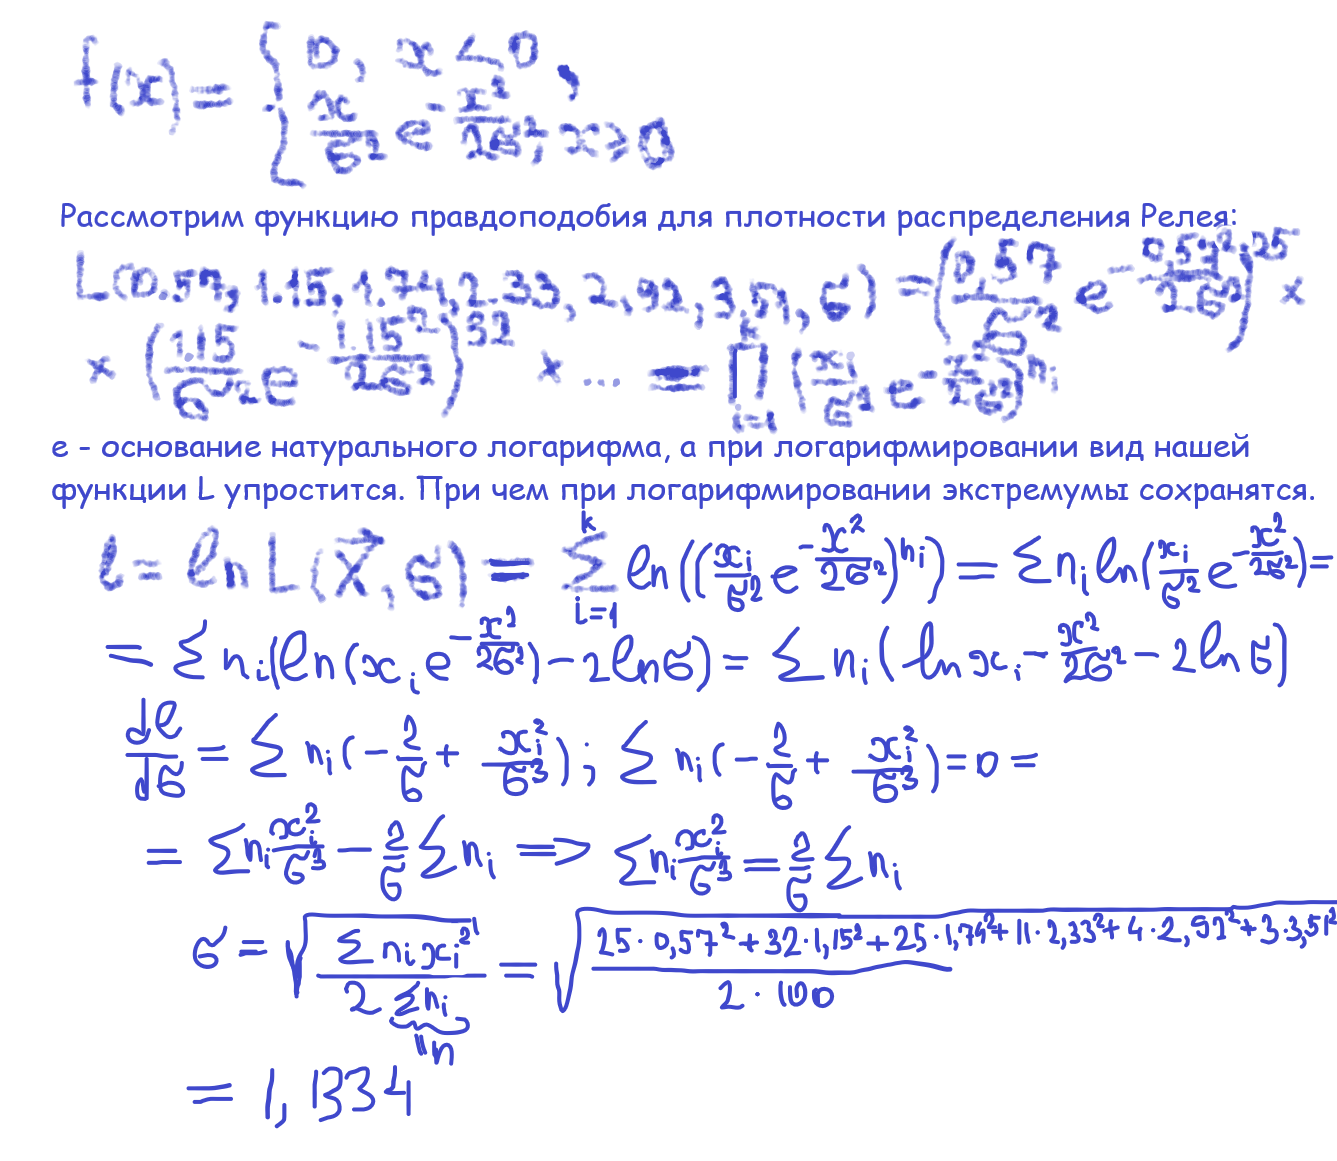 f(x) = { 0, x < 0,
x/σ² e^(-x²/2σ²), x ≥ 0
Рассмотрим функцию правдоподобия для плотности распределения Релея:
L(0.57, 1.15, 1.74, 2.33, 2.92, 3.51, σ) = (0,57/σ² e^(-0,57²/2σ²))^25 ×
× (1.15/σ² e^(-1.15²/2σ²))^32 × ... = ∏_{i=1}^{k} (x_i/σ² e^(-x_i²/2σ²))^{n_i}
е - основание натурального логарифма, а при логарифмировании вид нашей
функции L упростится. При чем при логарифмировании экстремумы сохранятся.
l = ln L(X⃗, σ) = ∑_{i=1}^{k} ln((x_i/σ² e^(-x²/2σ²))^{n_i}) = ∑ n_i ln(x_i/σ² e^(-x²/2σ²)) =
= ∑ n_i (ln(x_i e^(-x²/2σ²)) - 2 ln σ) = ∑ n_i (ln x_i - x²/2σ² - 2 ln σ)
dl/dσ = ∑ n_i (-2/σ + x_i²/σ³); ∑ n_i (-2/σ + x_i²/σ³) = 0 =
= ∑ n_i x_i²/σ³ - 2/σ ∑ n_i => ∑ n_i x_i²/σ³ = 2/σ ∑ n_i
σ = √(∑ n_i x_i² / 2 ∑ n_i) = √(25 · 0,57² + 32 · 1,15² + 25 · 1,74² + 11 · 2,33² + 4 · 2,92² + 3 · 3,51² / 2 · 100)
"n
= 1,1334